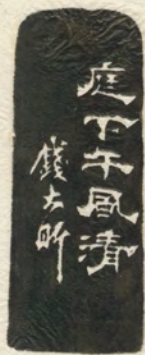 庭下午風清
錢大昕